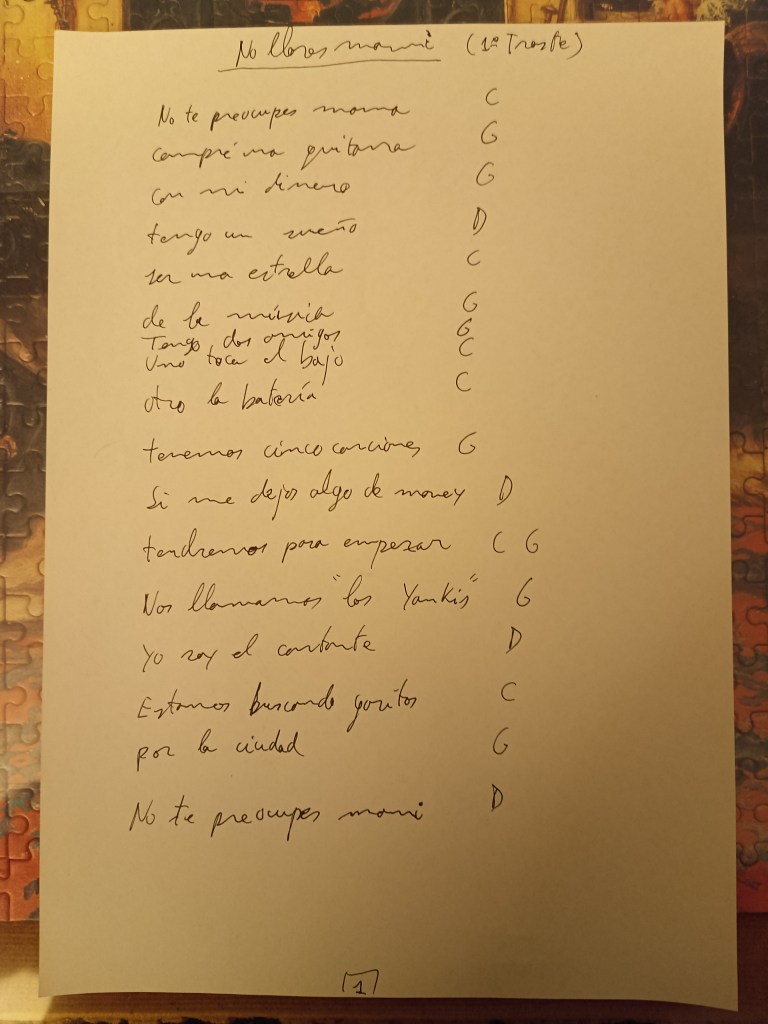 No llores mami (1º Traste)
No te preocupes mama C
compré una guitarra G
con mi dinero G
tengo un sueño D
ser una estrella C
de la música G
Tengo dos amigos G
Uno toca el bajo C
otro la batería C
tenemos cinco canciones G
Si me dejas algo de money D
tendremos para empezar C G
Nos llamamos "los Yankis" G
Yo soy el cantante D
Estamos buscando garitos C
por la ciudad G
No te preocupes mami D
1